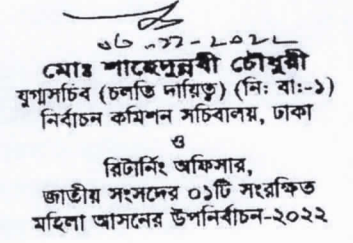 মোঃ শাহেদুন্নবী চৌধুরী
যুগ্মসচিব (চলতি দায়িত্ব) (নিঃ বাঃ-১)
নির্বাচন কমিশন সচিবালয়, ঢাকা
ও
রিটার্নিং অফিসার,
জাতীয় সংসদের ০১টি সংরক্ষিত
মহিলা আসনের উপনির্বাচন-২০২২